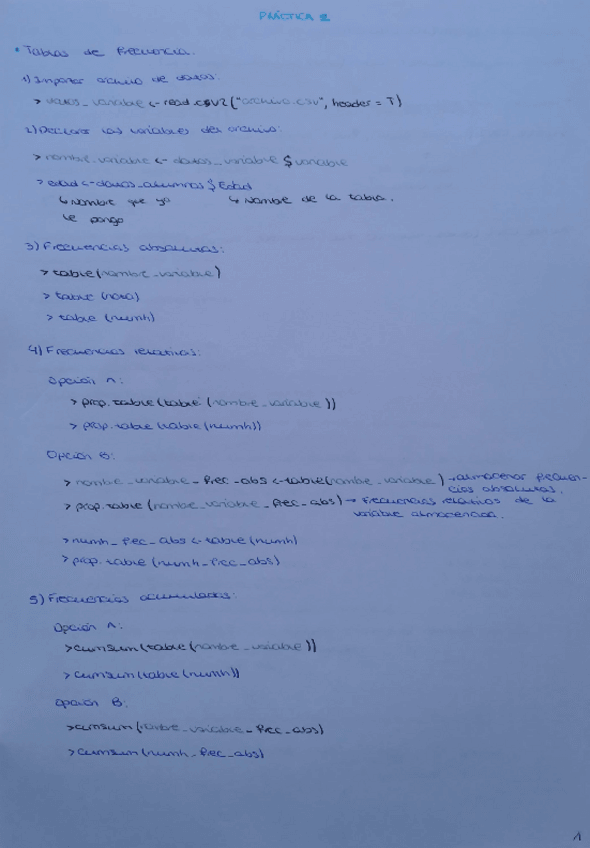 PRÁCTICA 2
• Tablas de frecuencia.
1) Importar archivo de datos:
> datos_variable <- read.csv2("archivo.csv", header = T)
2) Declarar las variables del archivo:
> nombre_variable <- datos_variable $ variable
> edad <- datos_alumnos $ Edad
↳ Nombre que yo ↳ Nombre de la tabla.
le pongo
3) Frecuencias absolutas:
> table(nombre_variable)
> table (nota)
> table (numh)
4) Frecuencias relativas:
Opción A:
> prop.table(table (nombre_variable))
> prop.table (table (numh))
Opción B:
> nombre_variable_frec_abs <- table(nombre_variable) → almacenar frecuen-
cias absolutas.
> prop.table (nombre_variable_frec_abs) → frecuencias relativas de la
variable almacenada.
> numh_frec_abs <- table (numh)
> prop.table (numh_frec_abs)
5) Frecuencias acumuladas:
Opción A:
> cumsum(table (nombre_variable))
> cumsum (table (numh))
Opción B:
> cumsum (nombre_variable_frec_abs)
> cumsum (numh_frec_abs)
1